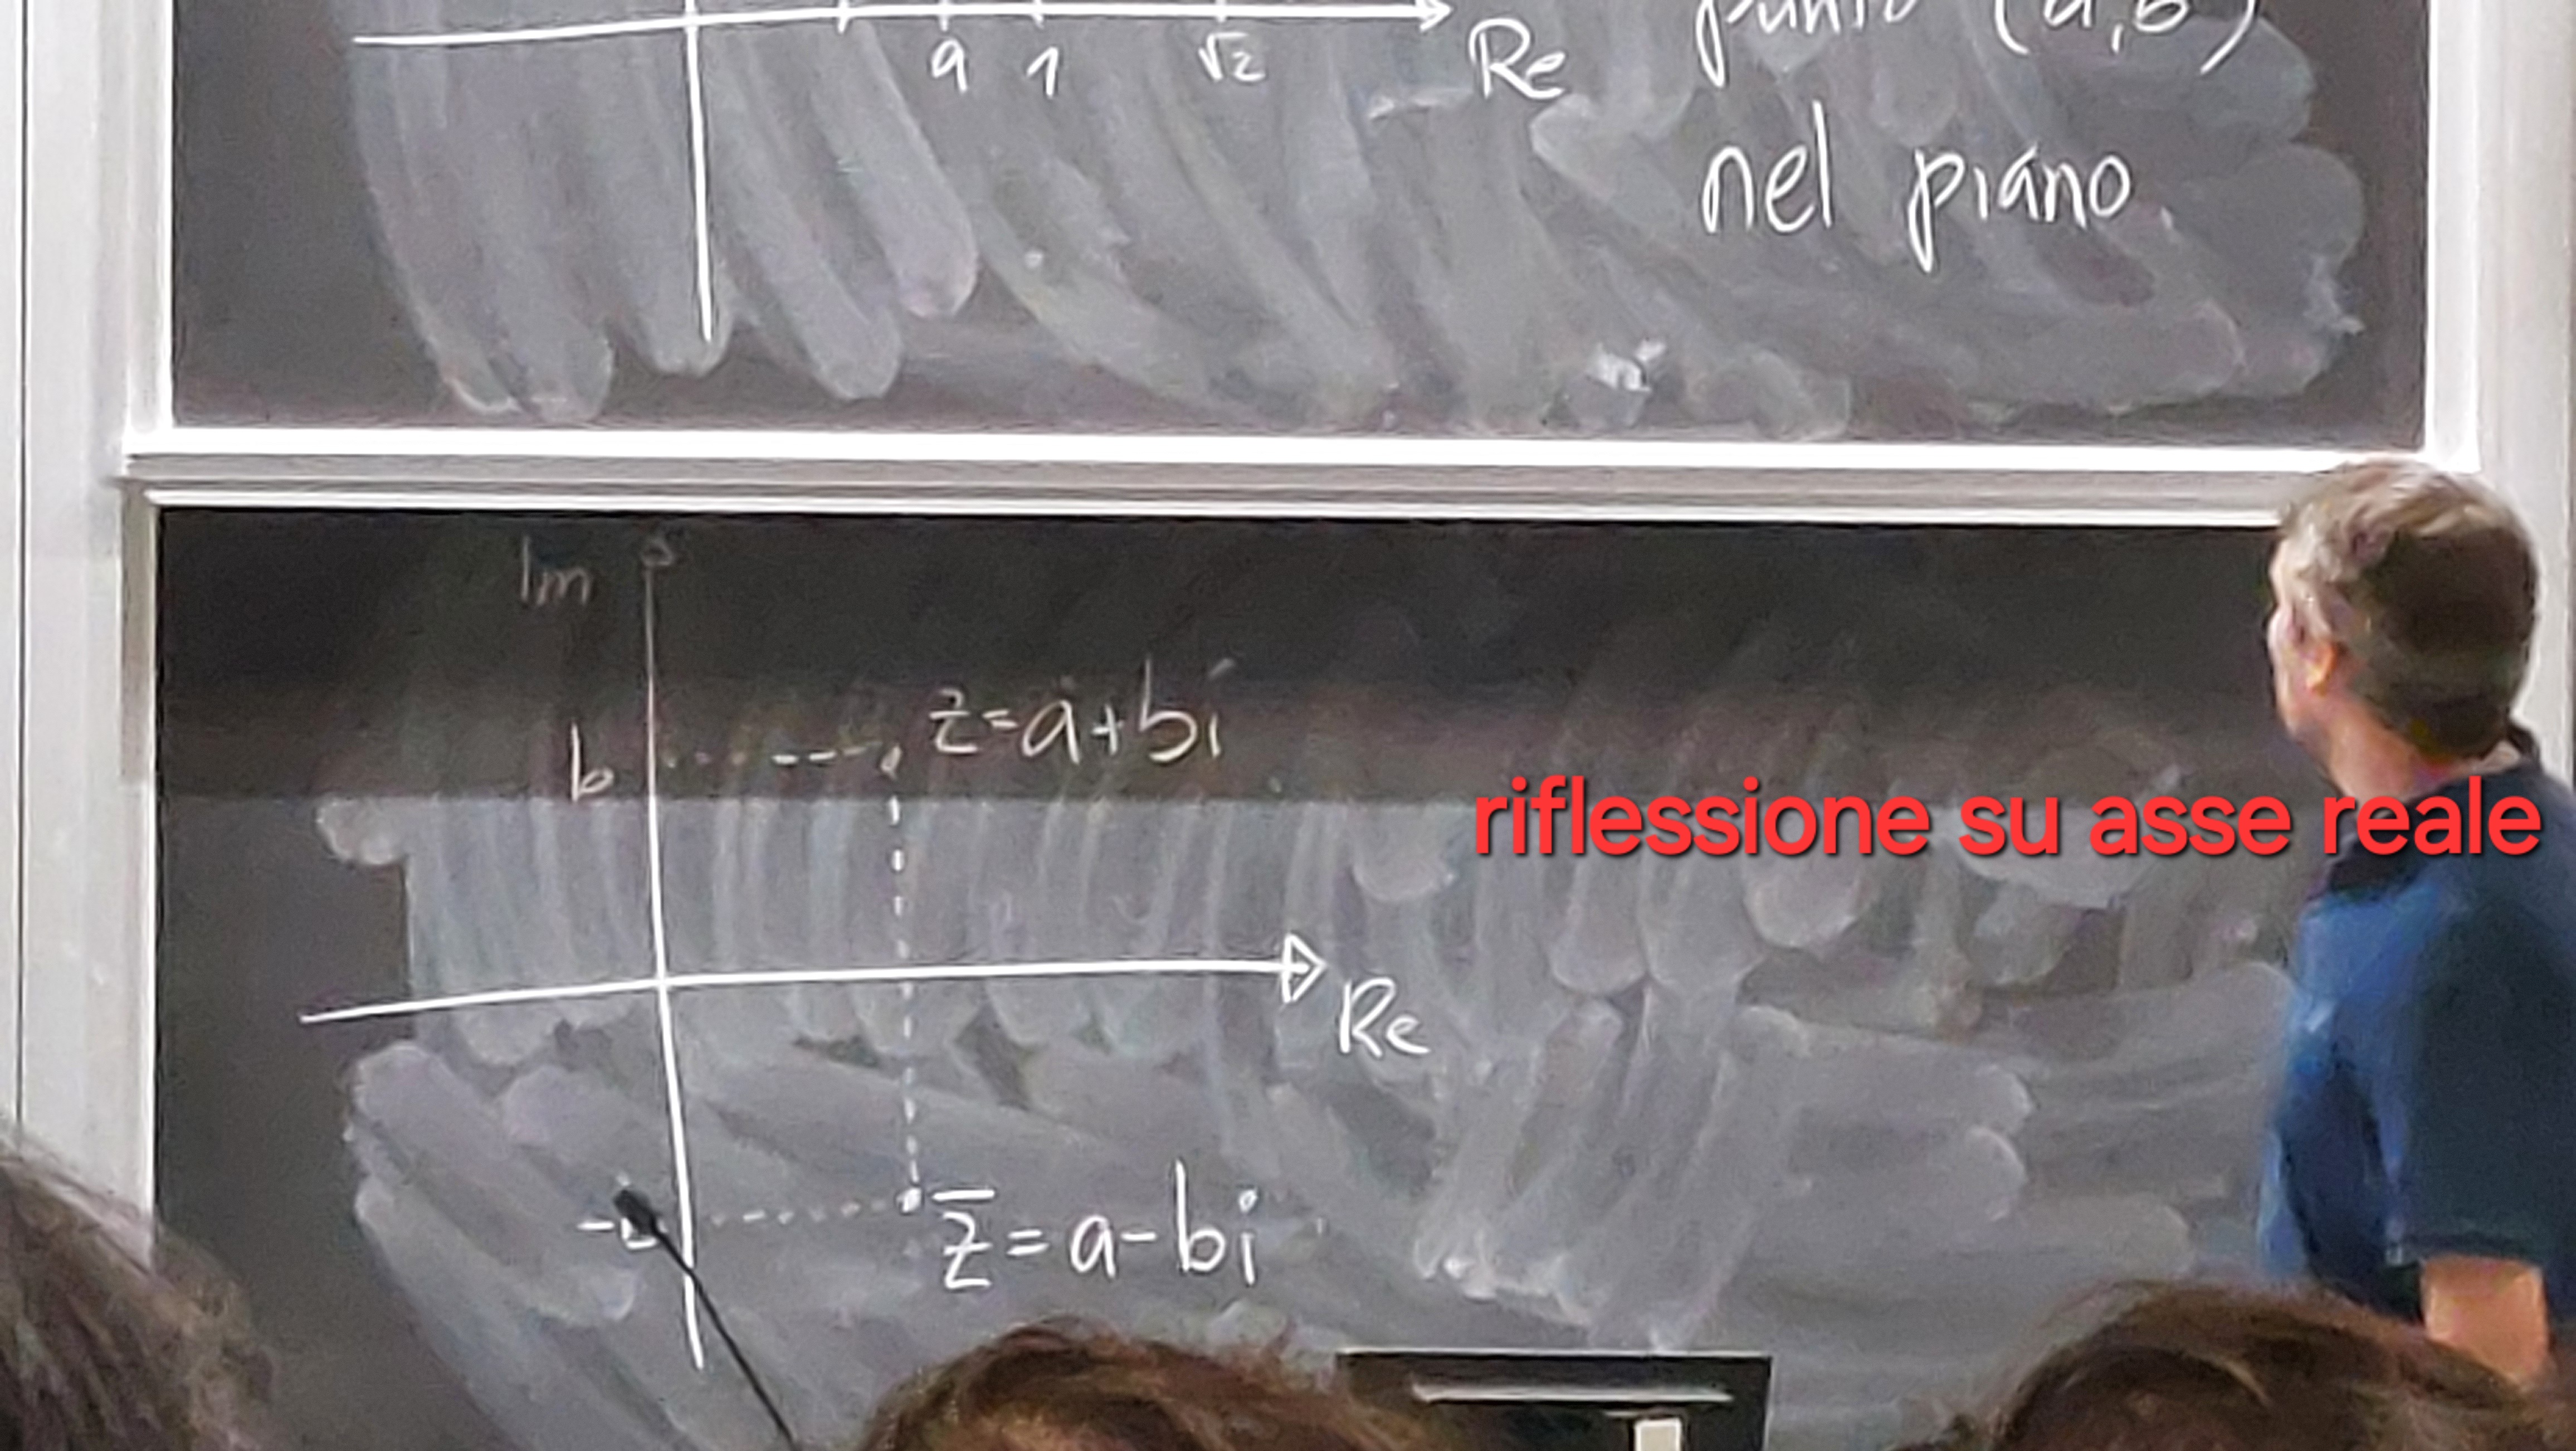 a 1 √2 Re
punto (a,b)
nel piano
Im
b z=a+bi
riflessione su asse reale
Re
z̅=a-bi